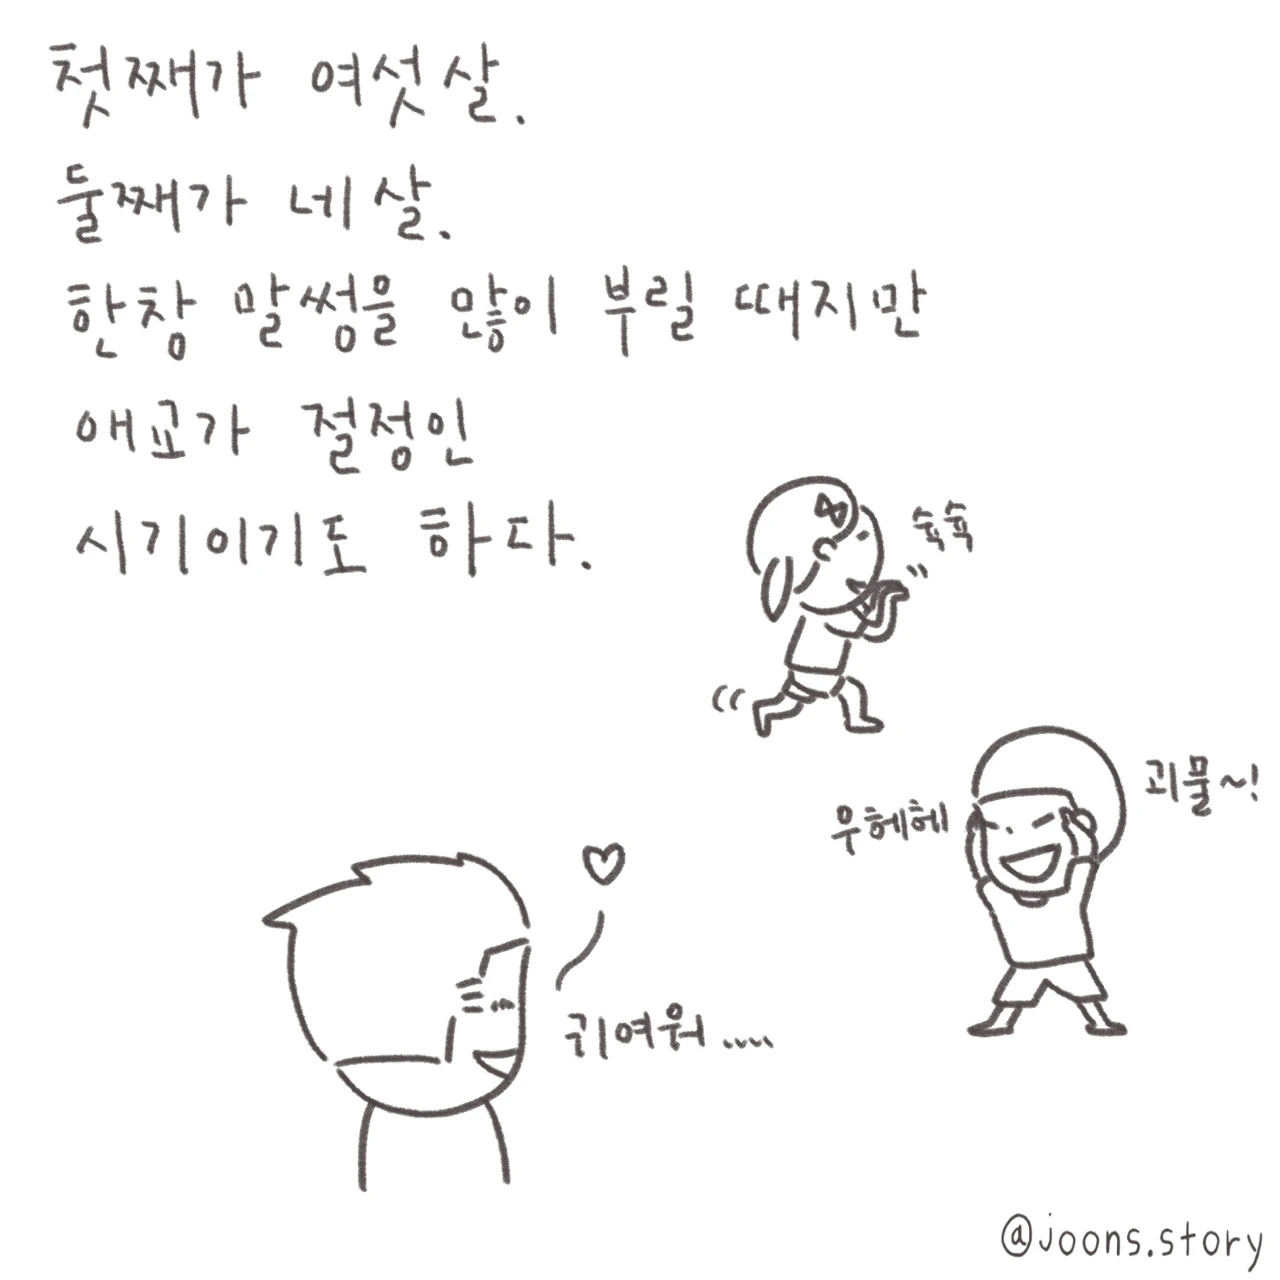 첫째가 여섯살.
둘째가 네살.
한창 말썽을 많이 부릴 때지만
애교가 절정인
시기이기도 하다.
슉슉
우헤헤
괴물~!
귀여워....
@joons.story